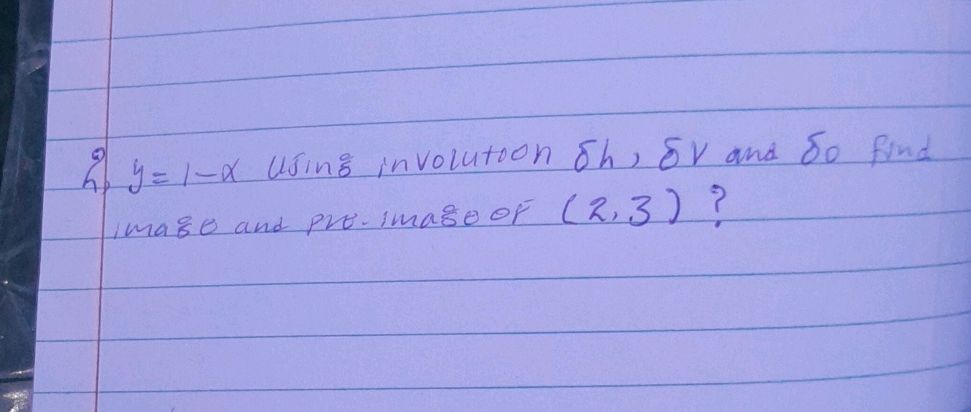 2, y = 1 - x Using involution δh, δv and δo find
image and pre-image of (2,3)?